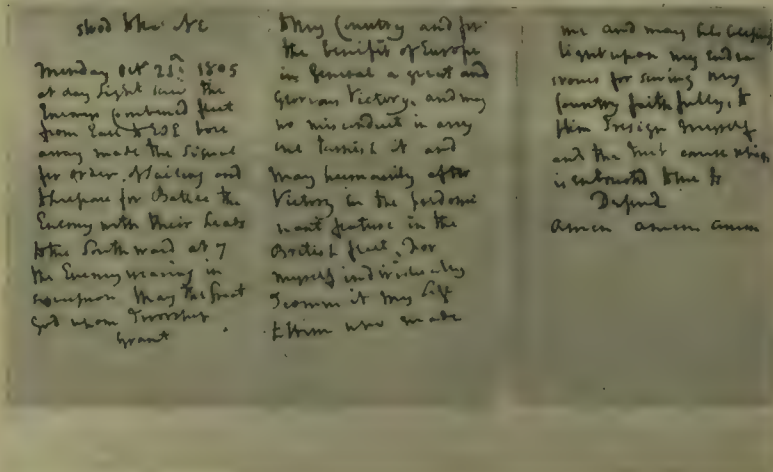 stood to the NE
Monday Oct 21st 1805
at day Light saw the
Enemys Combined fleet
from East to ESE bore
away made the Signal
for order of Sailing and
to prepare for Battle the
Enemy with their heads
to the Southward at 7
the Enemy wearing in
succession May the Great
God whom I worship
Grant
to my Country and for
the benefit of Europe
in General a great and
Glorious Victory, and may
no misconduct in any
one tarnish it and
may humanity after
Victory be the predomi
nant feature in the
British fleet, For
myself individually
I commit my Life
to Him who made
me and may his blessing
light upon my endea
vours for serving my
Country faithfully, to
Him I resign myself
and the just cause which
is entrusted to me to
Defend
amen amen amen